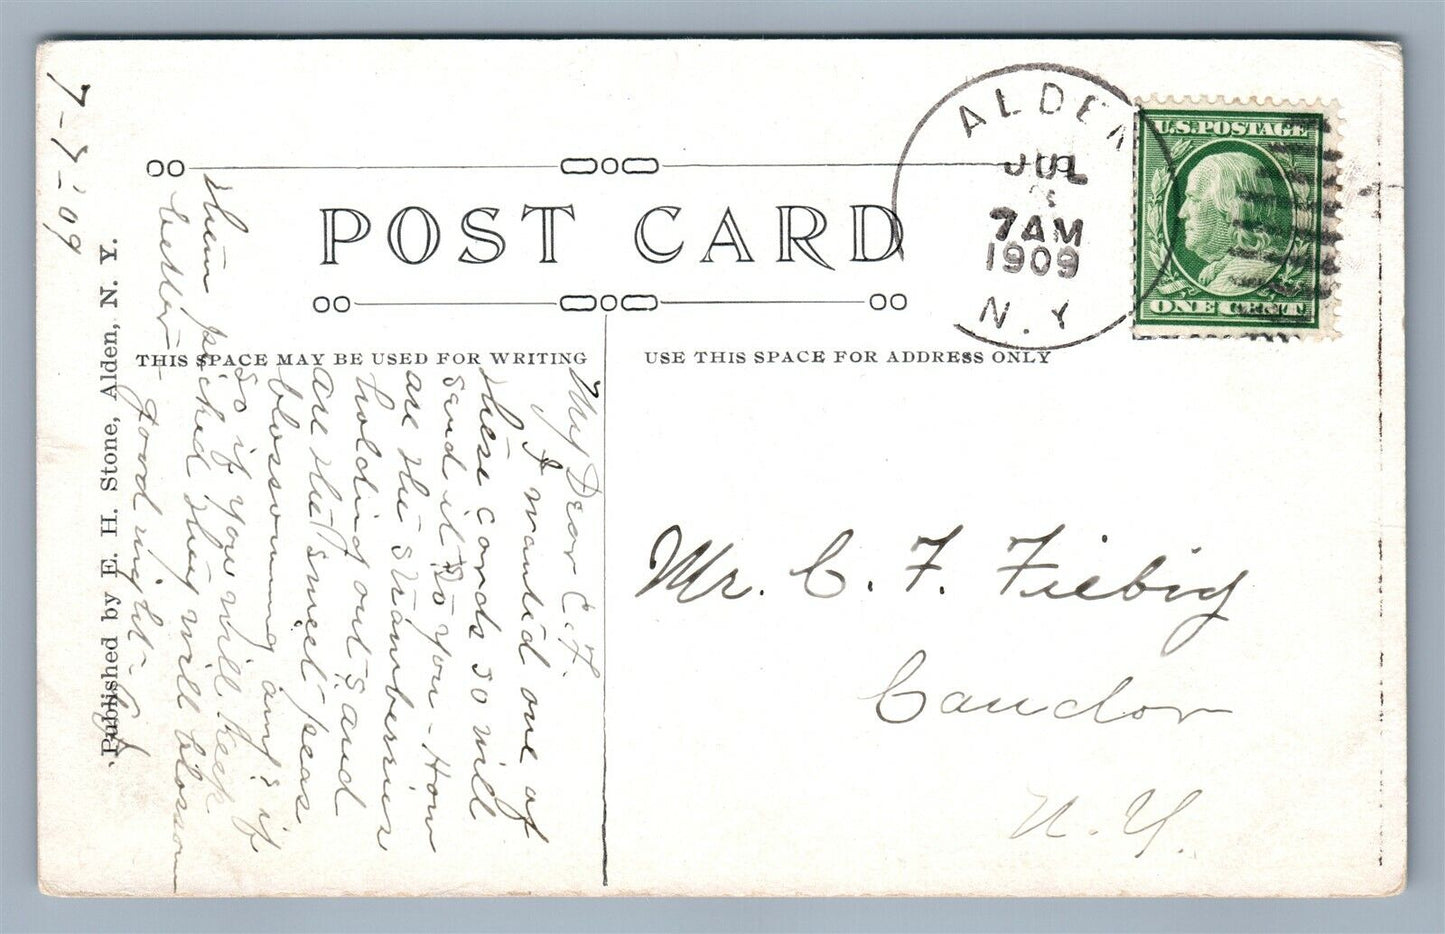 7-5-'09
ALDEN
JUL
7AM
1909
N.Y.
U.S. POSTAGE
ONE CENT
POST CARD
THIS SPACE MAY BE USED FOR WRITING
USE THIS SPACE FOR ADDRESS ONLY
Published by E. H. Stone, Alden, N. Y.
My Dear C. F.
I wanted one of
these cards so will
send it to you - How
are the strawberries
holding out? and
are the sweet peas
blossoming any? if
so if you will keep
them picked they will blossom
better - Good night -
Mr. C. F. Fiebig
Candor
N. Y.